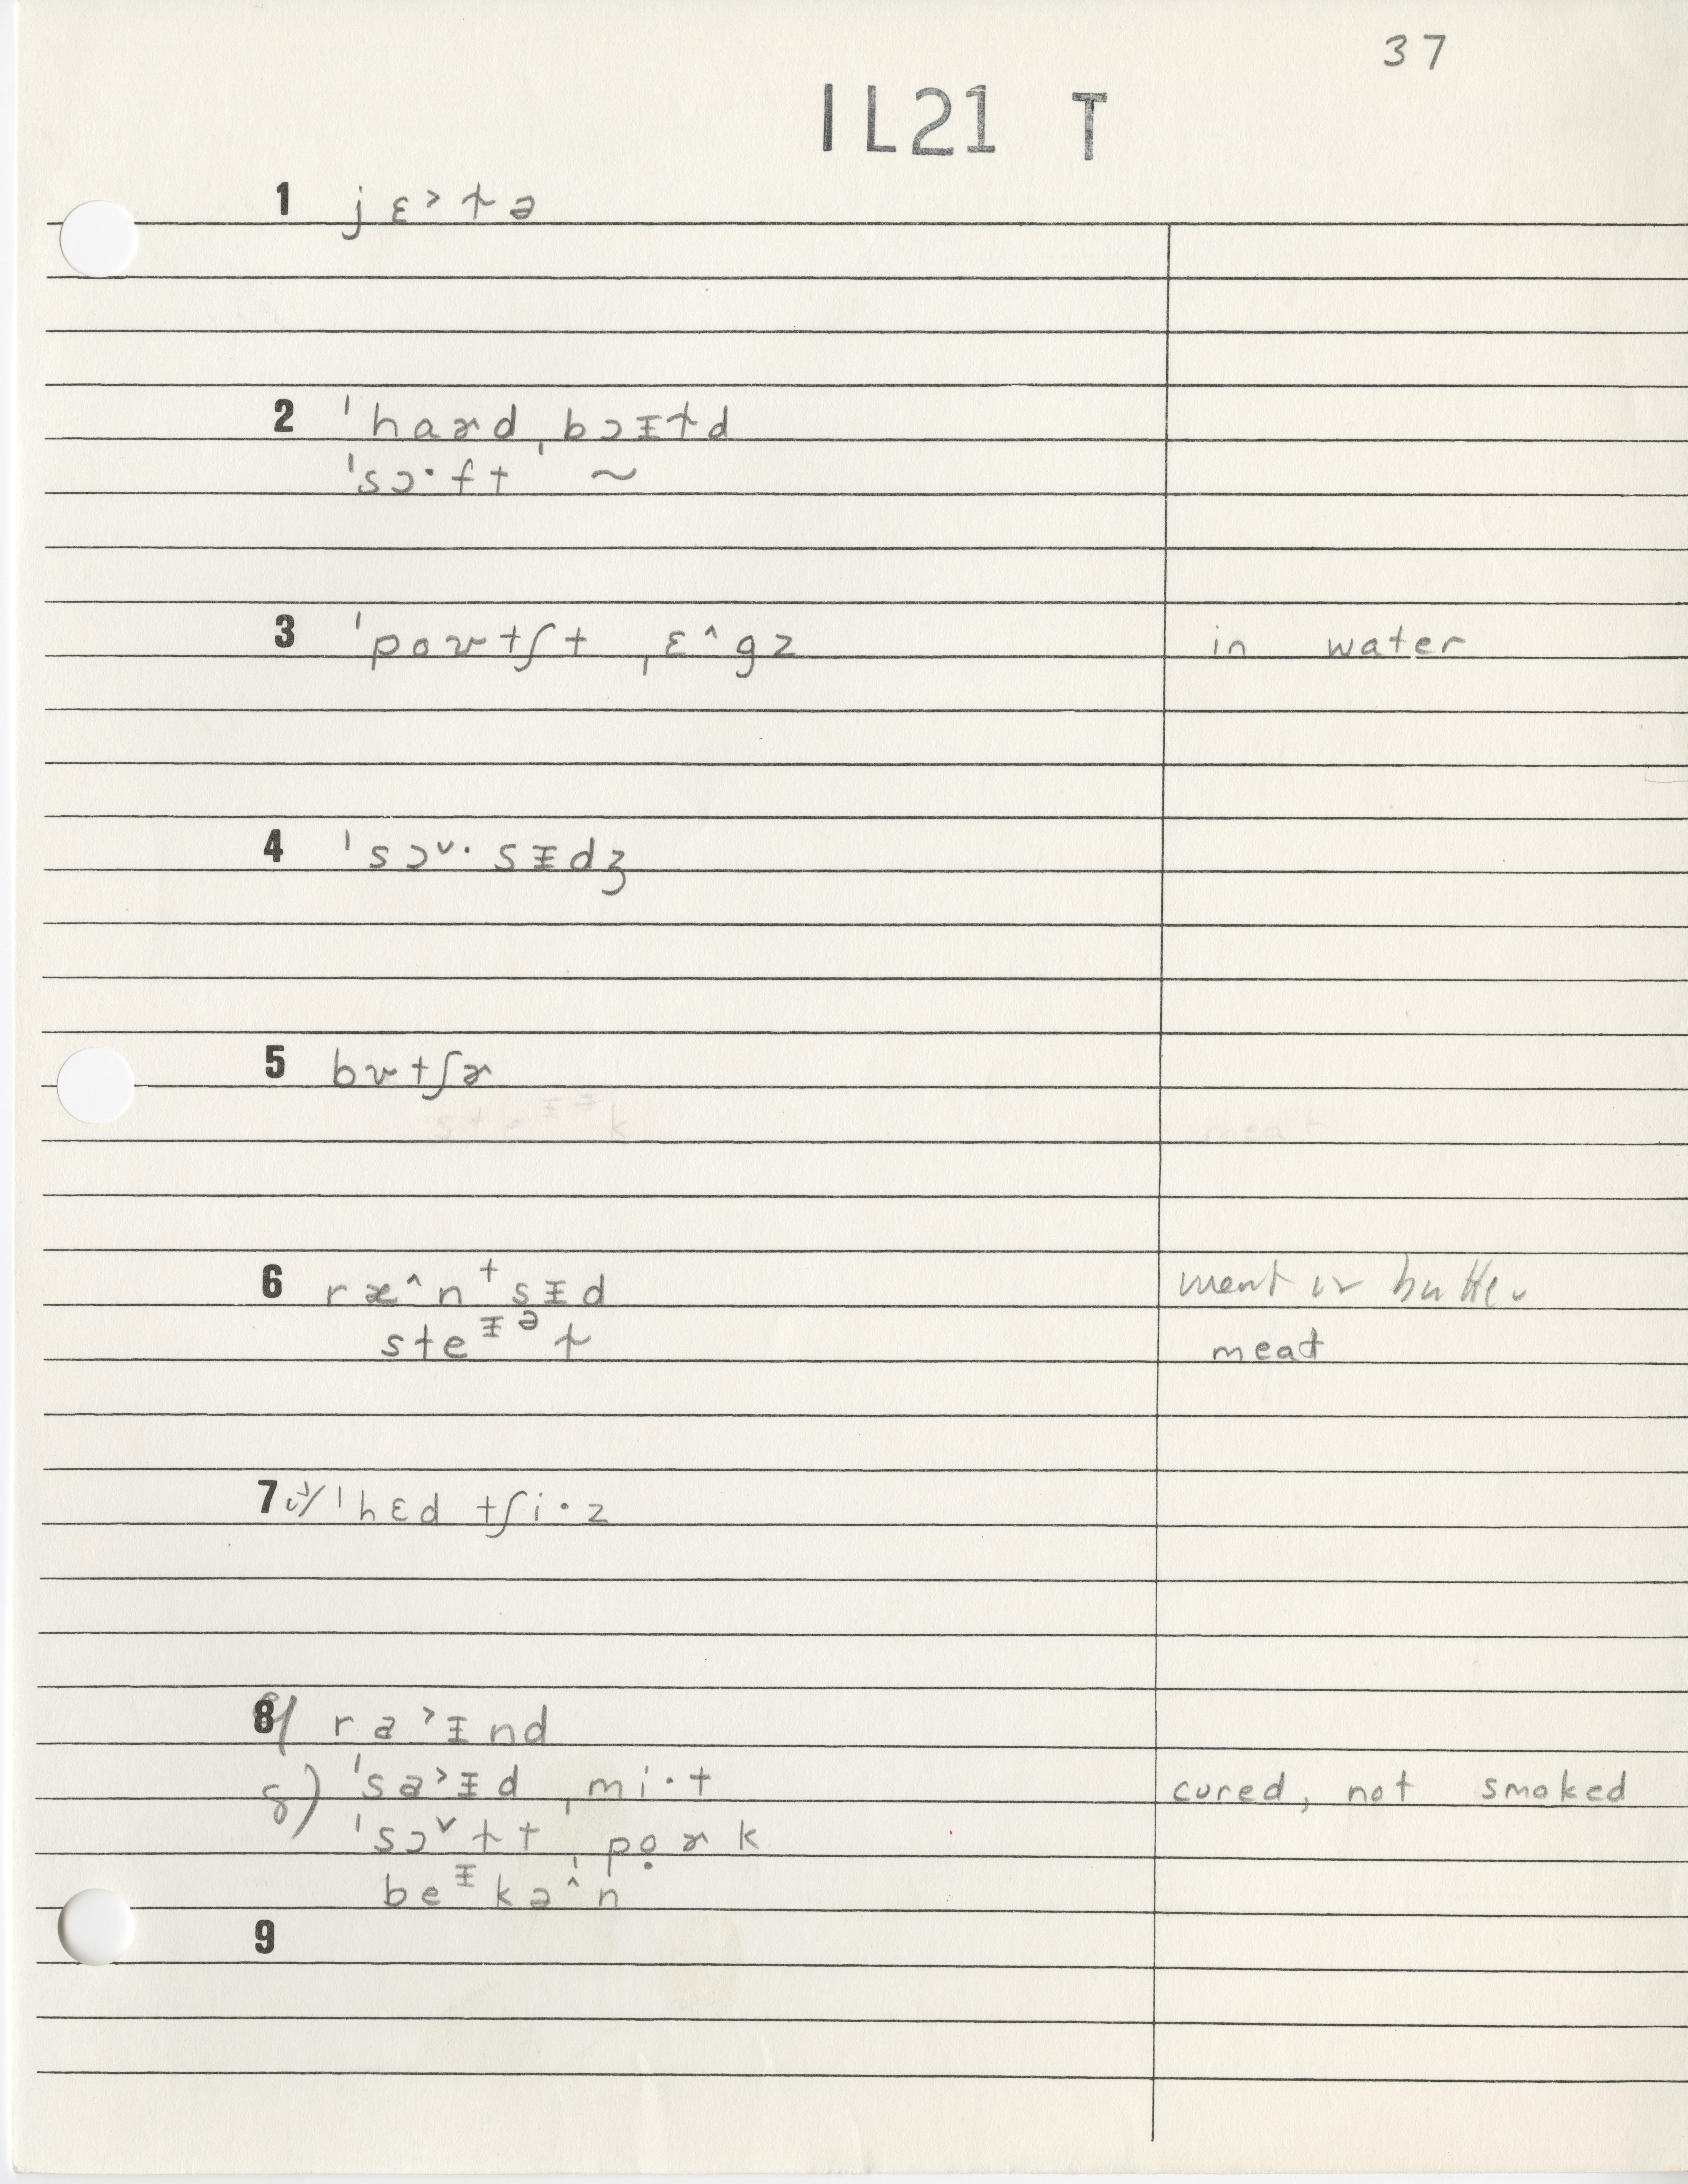 37
IL21 T
1 jɛ˃ɫə
2 ˈhaɚd ˌbɔᵻɫd
ˈsɔ·ft ~
3 ˈpoʊtʃt ˌɛ^gz in water
4 ˈsɔ˅·sᵻdʒ
5 bʊtʃɚ
6 ræ^nᵗsᵻd meat or butter
steᵻᵊɫ meat
7 ˈhɛd tʃi·z
8 ra˃ᵻnd
8) ˈsa˃ᵻd ˌmi·t cured, not smoked
ˈsɔ˅ɫt ˌpọɚk
beᵻkə^n
9